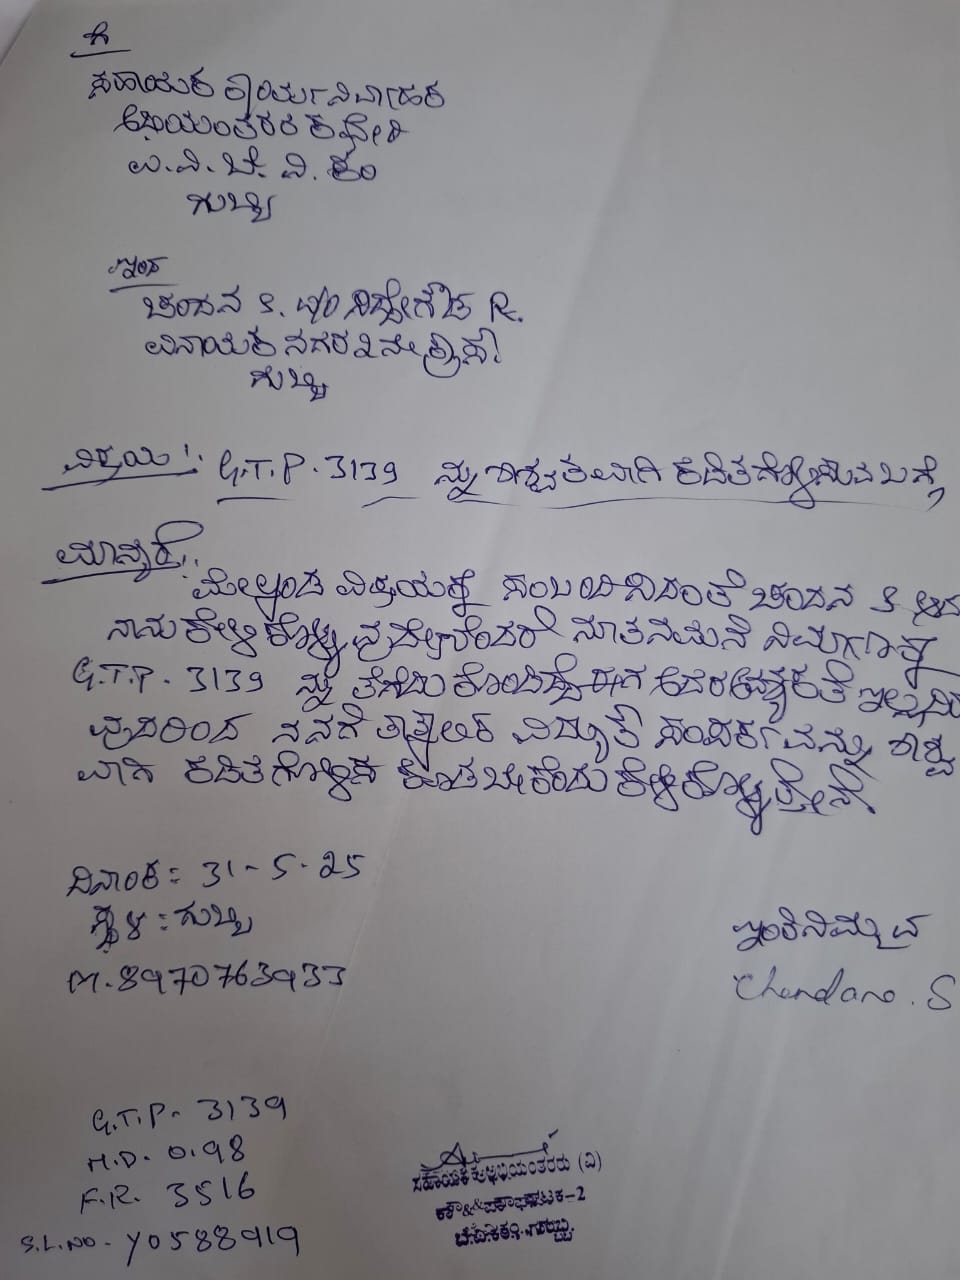 ಗೆ
ಸಹಾಯಕ ಕಾರ್ಯನಿರ್ವಾಹಕ
ಅಭಿಯಂತರರ ಕಛೇರಿ
ಉ.ವಿ. ಬೆ. ವಿ. ಕಂ
ಗುಬ್ಬಿ
ಇಂದ
ಚಂದನ S. W/O ಸಿದ್ದೇಗೌಡ R.
ವಿನಾಯಕ ನಗರ 2ನೇ ಕ್ರಾಸ್
ಗುಬ್ಬಿ
ವಿಷಯ:. G.T.P. 3139 ನ್ನು ಶಾಶ್ವತವಾಗಿ ಕಡಿತಗೊಳಿಸುವ ಬಗ್ಗೆ
ಮಾನ್ಯರೆ,
ಮೇಲ್ಕಂಡ ವಿಷಯಕ್ಕೆ ಸಂಬಂದಿಸಿದಂತೆ ಚಂದನ S ಆದ
ನಾನು ಕೇಳಿಕೊಳ್ಳುವುದೇನೆಂದರೆ ನೂತನ ಮನೆ ನಿರ್ಮಾಣಕ್ಕೆ
G.T.P. 3139 ನ್ನು ತೆಗೆದುಕೊಂಡಿದ್ದೆ ಈಗ ಅದರ ಅವಶ್ಯಕತೆ ಇಲ್ಲದಿರು
ವುದರಿಂದ ನನಗೆ ತಾತ್ಕಾಲಿಕ ವಿದ್ಯುತ್ ಸಂಪರ್ಕವನ್ನು ಶಾಶ್ವ
ವಾಗಿ ಕಡಿತಗೊಳಿಸಿ ಕೊಡಬೇಕೆಂದು ಕೇಳಿಕೊಳ್ಳುತ್ತೇನೆ.
ದಿನಾಂಕ: 31-5-25
ಸ್ಥಳ: ಗುಬ್ಬಿ
M. 8970763933
ಇಂತಿ ನಿಮ್ಮವ
Chandana. S
G.T.P. 3139
M.D. 0.98
F.R. 3516
S.L.NO- Y0588919
ಸಹಾಯಕ ಅಭಿಯಂತರರು (ವಿ)
ಘಟಕ-2
ಬೆ.ವಿ.ಕಂ. ಗುಬ್ಬಿ.